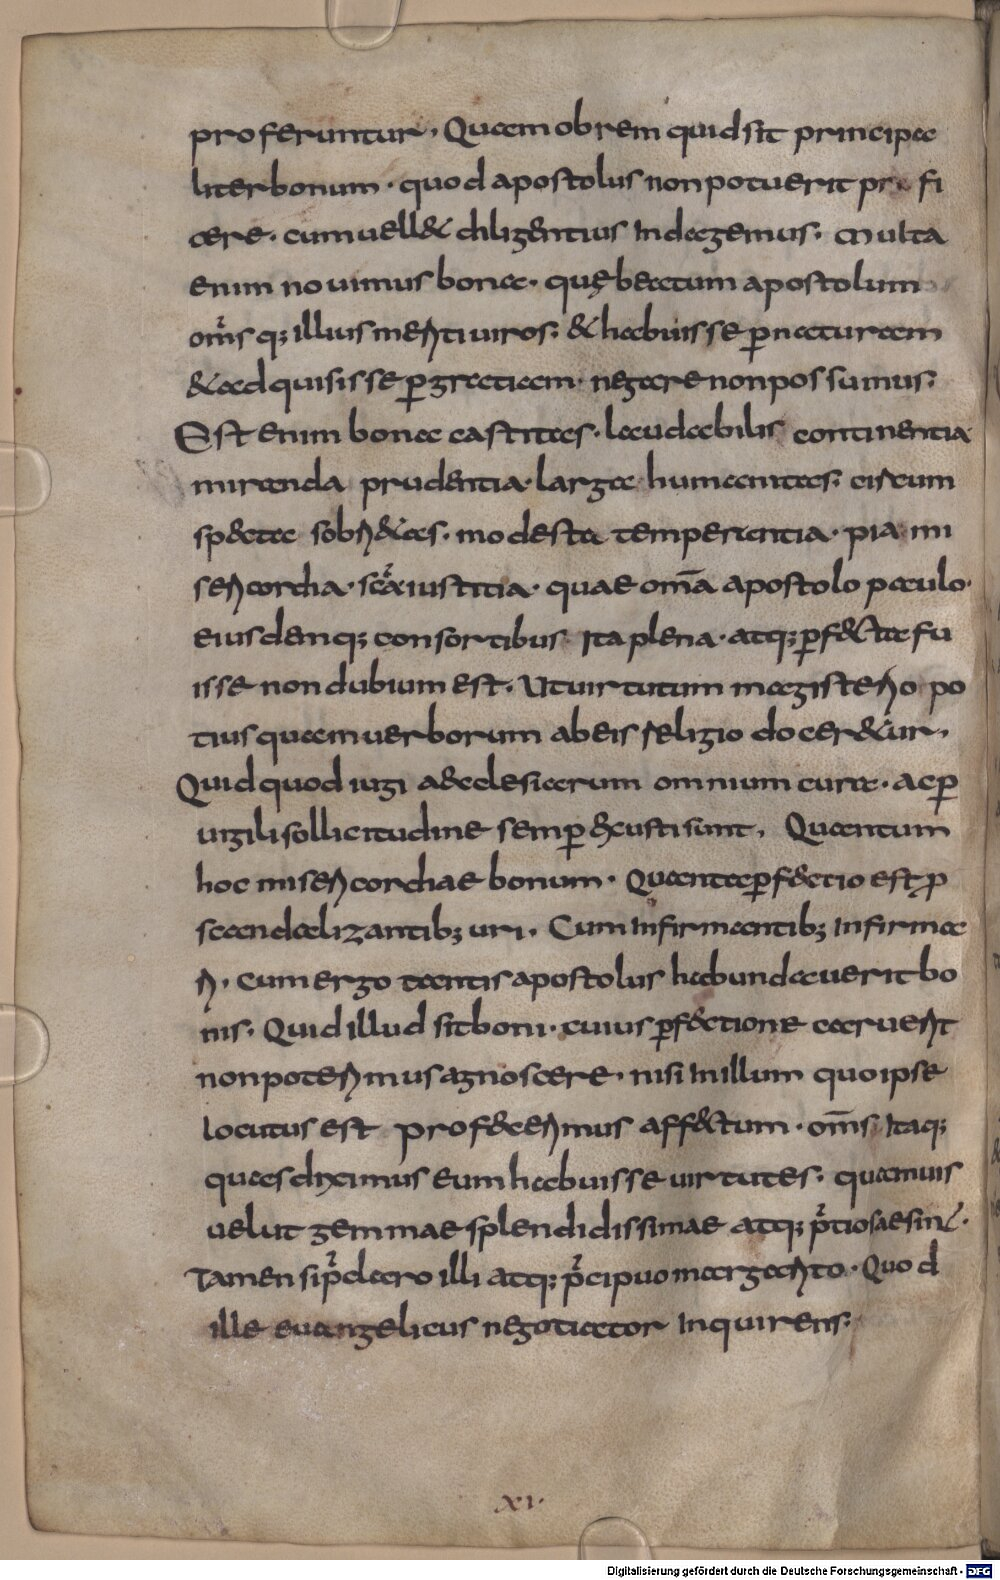 proferuntur. Quamobrem quid sit principa
liter bonum. quod apostolus non potuerit perfi
cere. cum uell& diligentius Indagemus. Multa
enim nouimus bona. quę beatum apostolum
om̅s q; illius meriti uiros. & habuisse ꝑ naturam
& adquisisse ꝑ gratiam. negare non possumus.
Est enim bona castitas. laudabilis continentia
miranda prudentia. larga humanitas. circum
specta sobri&as. modesta temperantia. pia mi
sericordia. sc̅a iustitia. quae om̅a apostolo paulo.
eiusdemq; consortibus Ita plena. atq; ꝑfecta fu
isse non dubium est. Ut uirtutum magisterio po
tius quam uerborum ab eis religio docer&ur.
Quid quod iugi aecclesiarum omnium cura. ac ꝑ
uigili sollicitudine semꝑ exusti sunt. Quantum
hoc misericordiae bonum. Quanta ꝑfectio est ꝓ
scandalizantib; uri. Cum Infirmantib; Infirma
ri. cum ergo tantis apostolus habundauerit bo
nis. Quid illud sit boni. cuius ꝑfectione caruerit
non poterimus agnoscere. nisi In illum quo ipse
locutus est profecerimus affectum. om̅s Itaq;
quas diximus eum habuisse uirtutes. quamuis
uelut gemmae splendidissimae atq; p̅tiosae sint.
Tamen si p̅claro illi atq; p̅cipuo margarito. Quod
ille euangelicus negotiator Inquirens.
XV.
Digitalisierung gefördert durch die Deutsche Forschungsgemeinschaft - DFG